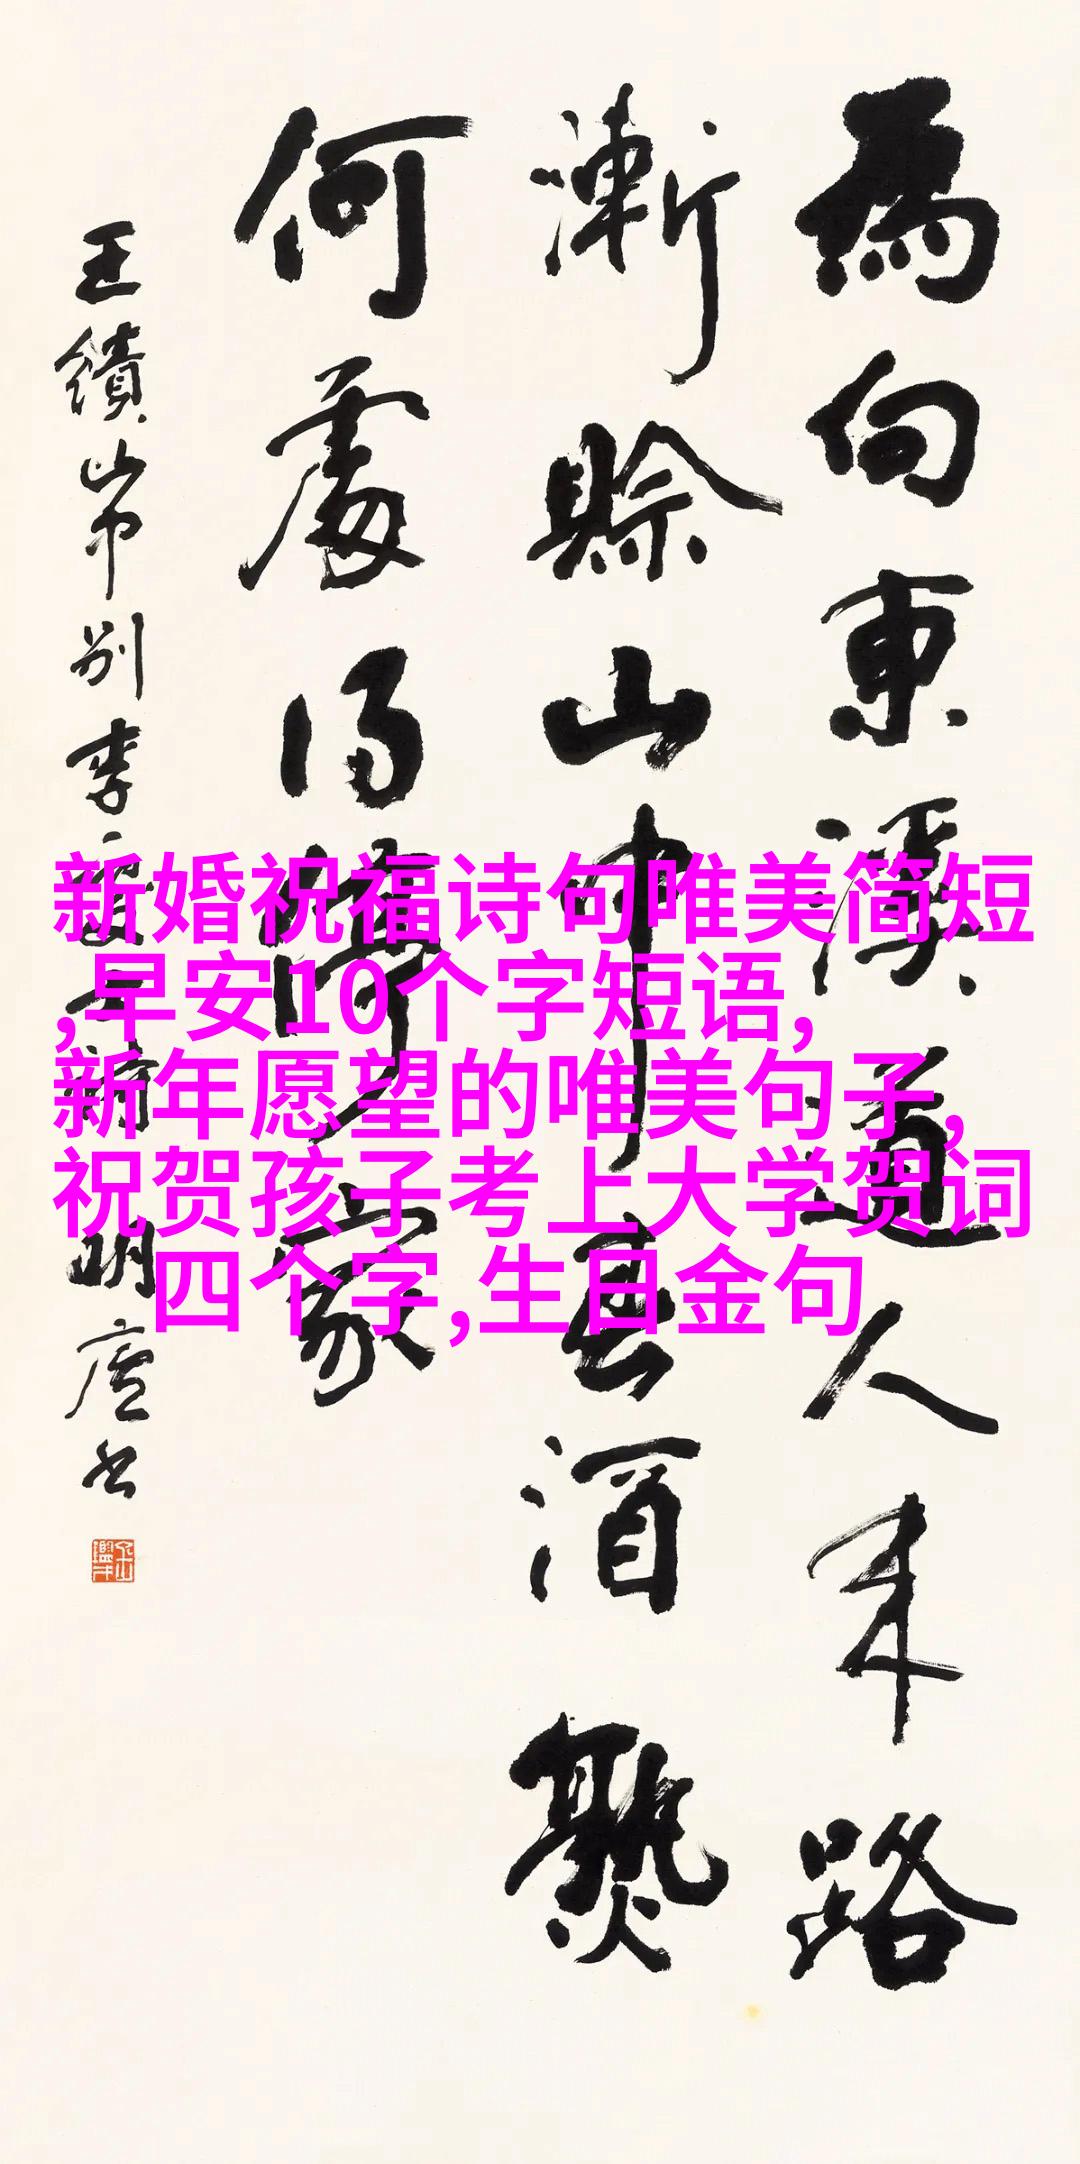 為向東溪道人来路
漸賒山中春酒熟
何處得停家
王績山中别李處士詩 明廬书
新婚祝福诗句唯美简短
,早安10个字短语,
新年愿望的唯美句子,
祝贺孩子考上大学贺词
四个字,生日金句